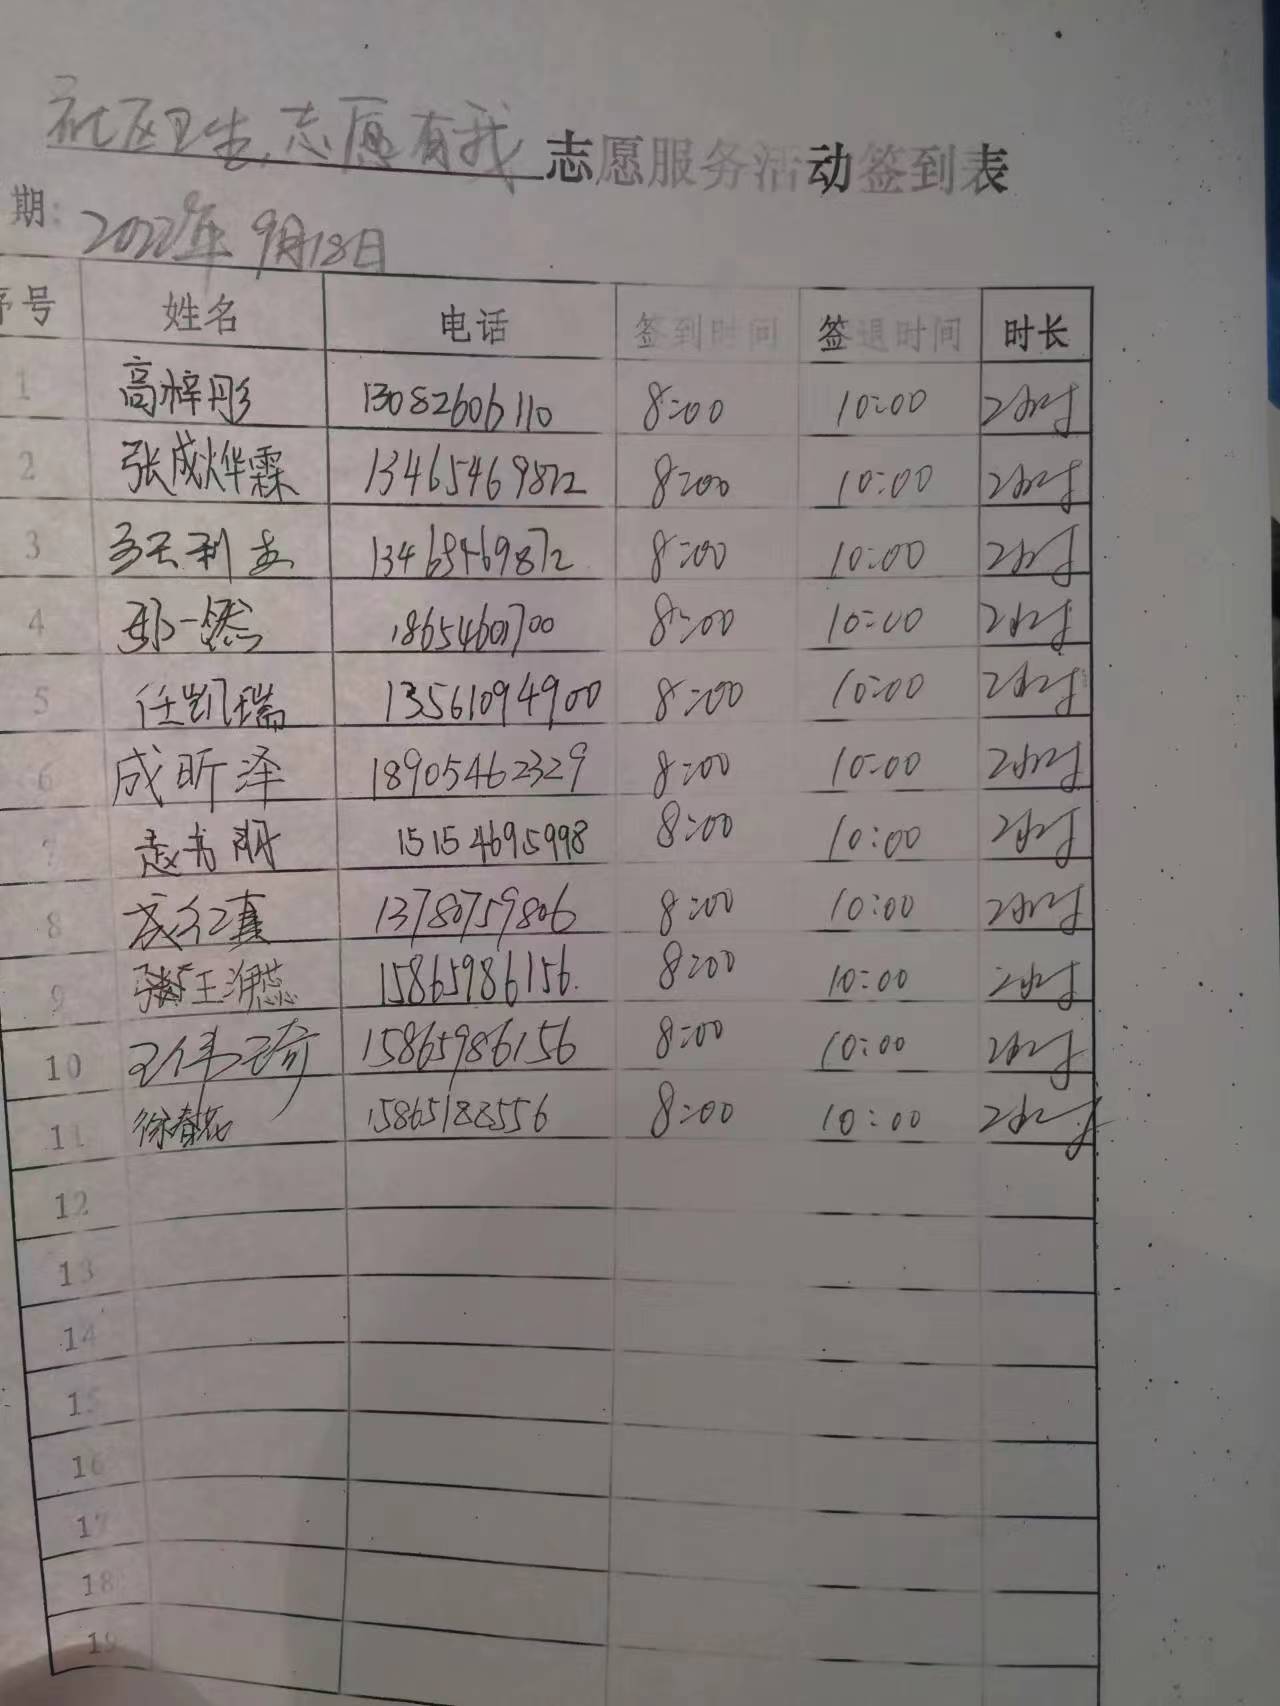 社区卫生,志愿有我 志愿服务活动签到表
期: 2022年9月18日
序号 姓名 电话 签到时间 签退时间 时长
1 高梓彤 13082606110 8:00 10:00 2小时
2 张成烨霖 13465469872 8:00 10:00 2小时
3 13465469872 8:00 10:00 2小时
4 一然 8:00 10:00 2小时
5 任凯瑞 13561094900 8:00 10:00 2小时
6 成昕泽 18905462329 8:00 10:00 2小时
7 赵书 15154695998 8:00 10:00 2小时
8 成红真 13780759806 8:00 10:00 2小时
9 王 15865986156. 8:00 10:00 2小时
10 王伟琦 15865986156 8:00 10:00 2小时
11 徐春花 8:00 10:00 2小时
12
13
14
15
16
17
18
19